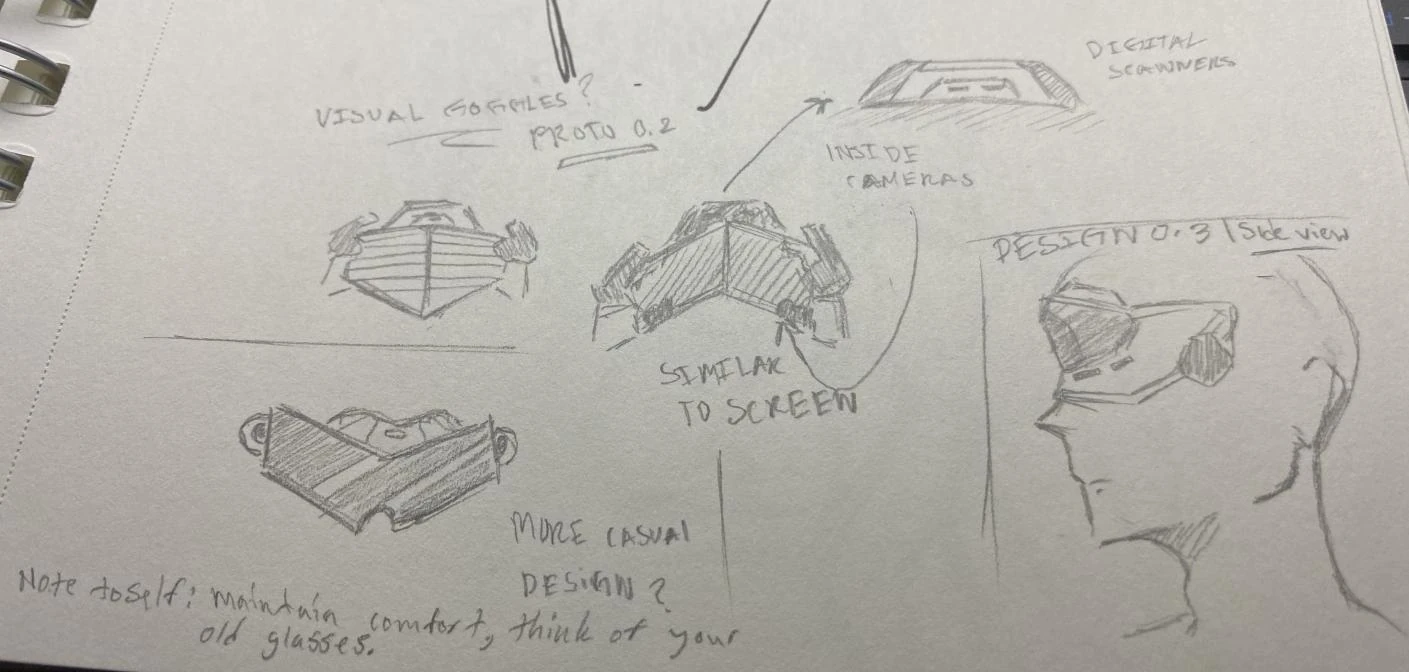 VISUAL GOGGLES?
PROTO 0.2
DIGITAL
SCANNERS
INSIDE
CAMERAS
DESIGN 0.3 | Side view
SIMILAR
TO SCREEN
MORE CASUAL
DESIGN?
Note to self: maintain comfort, think of your
old glasses.